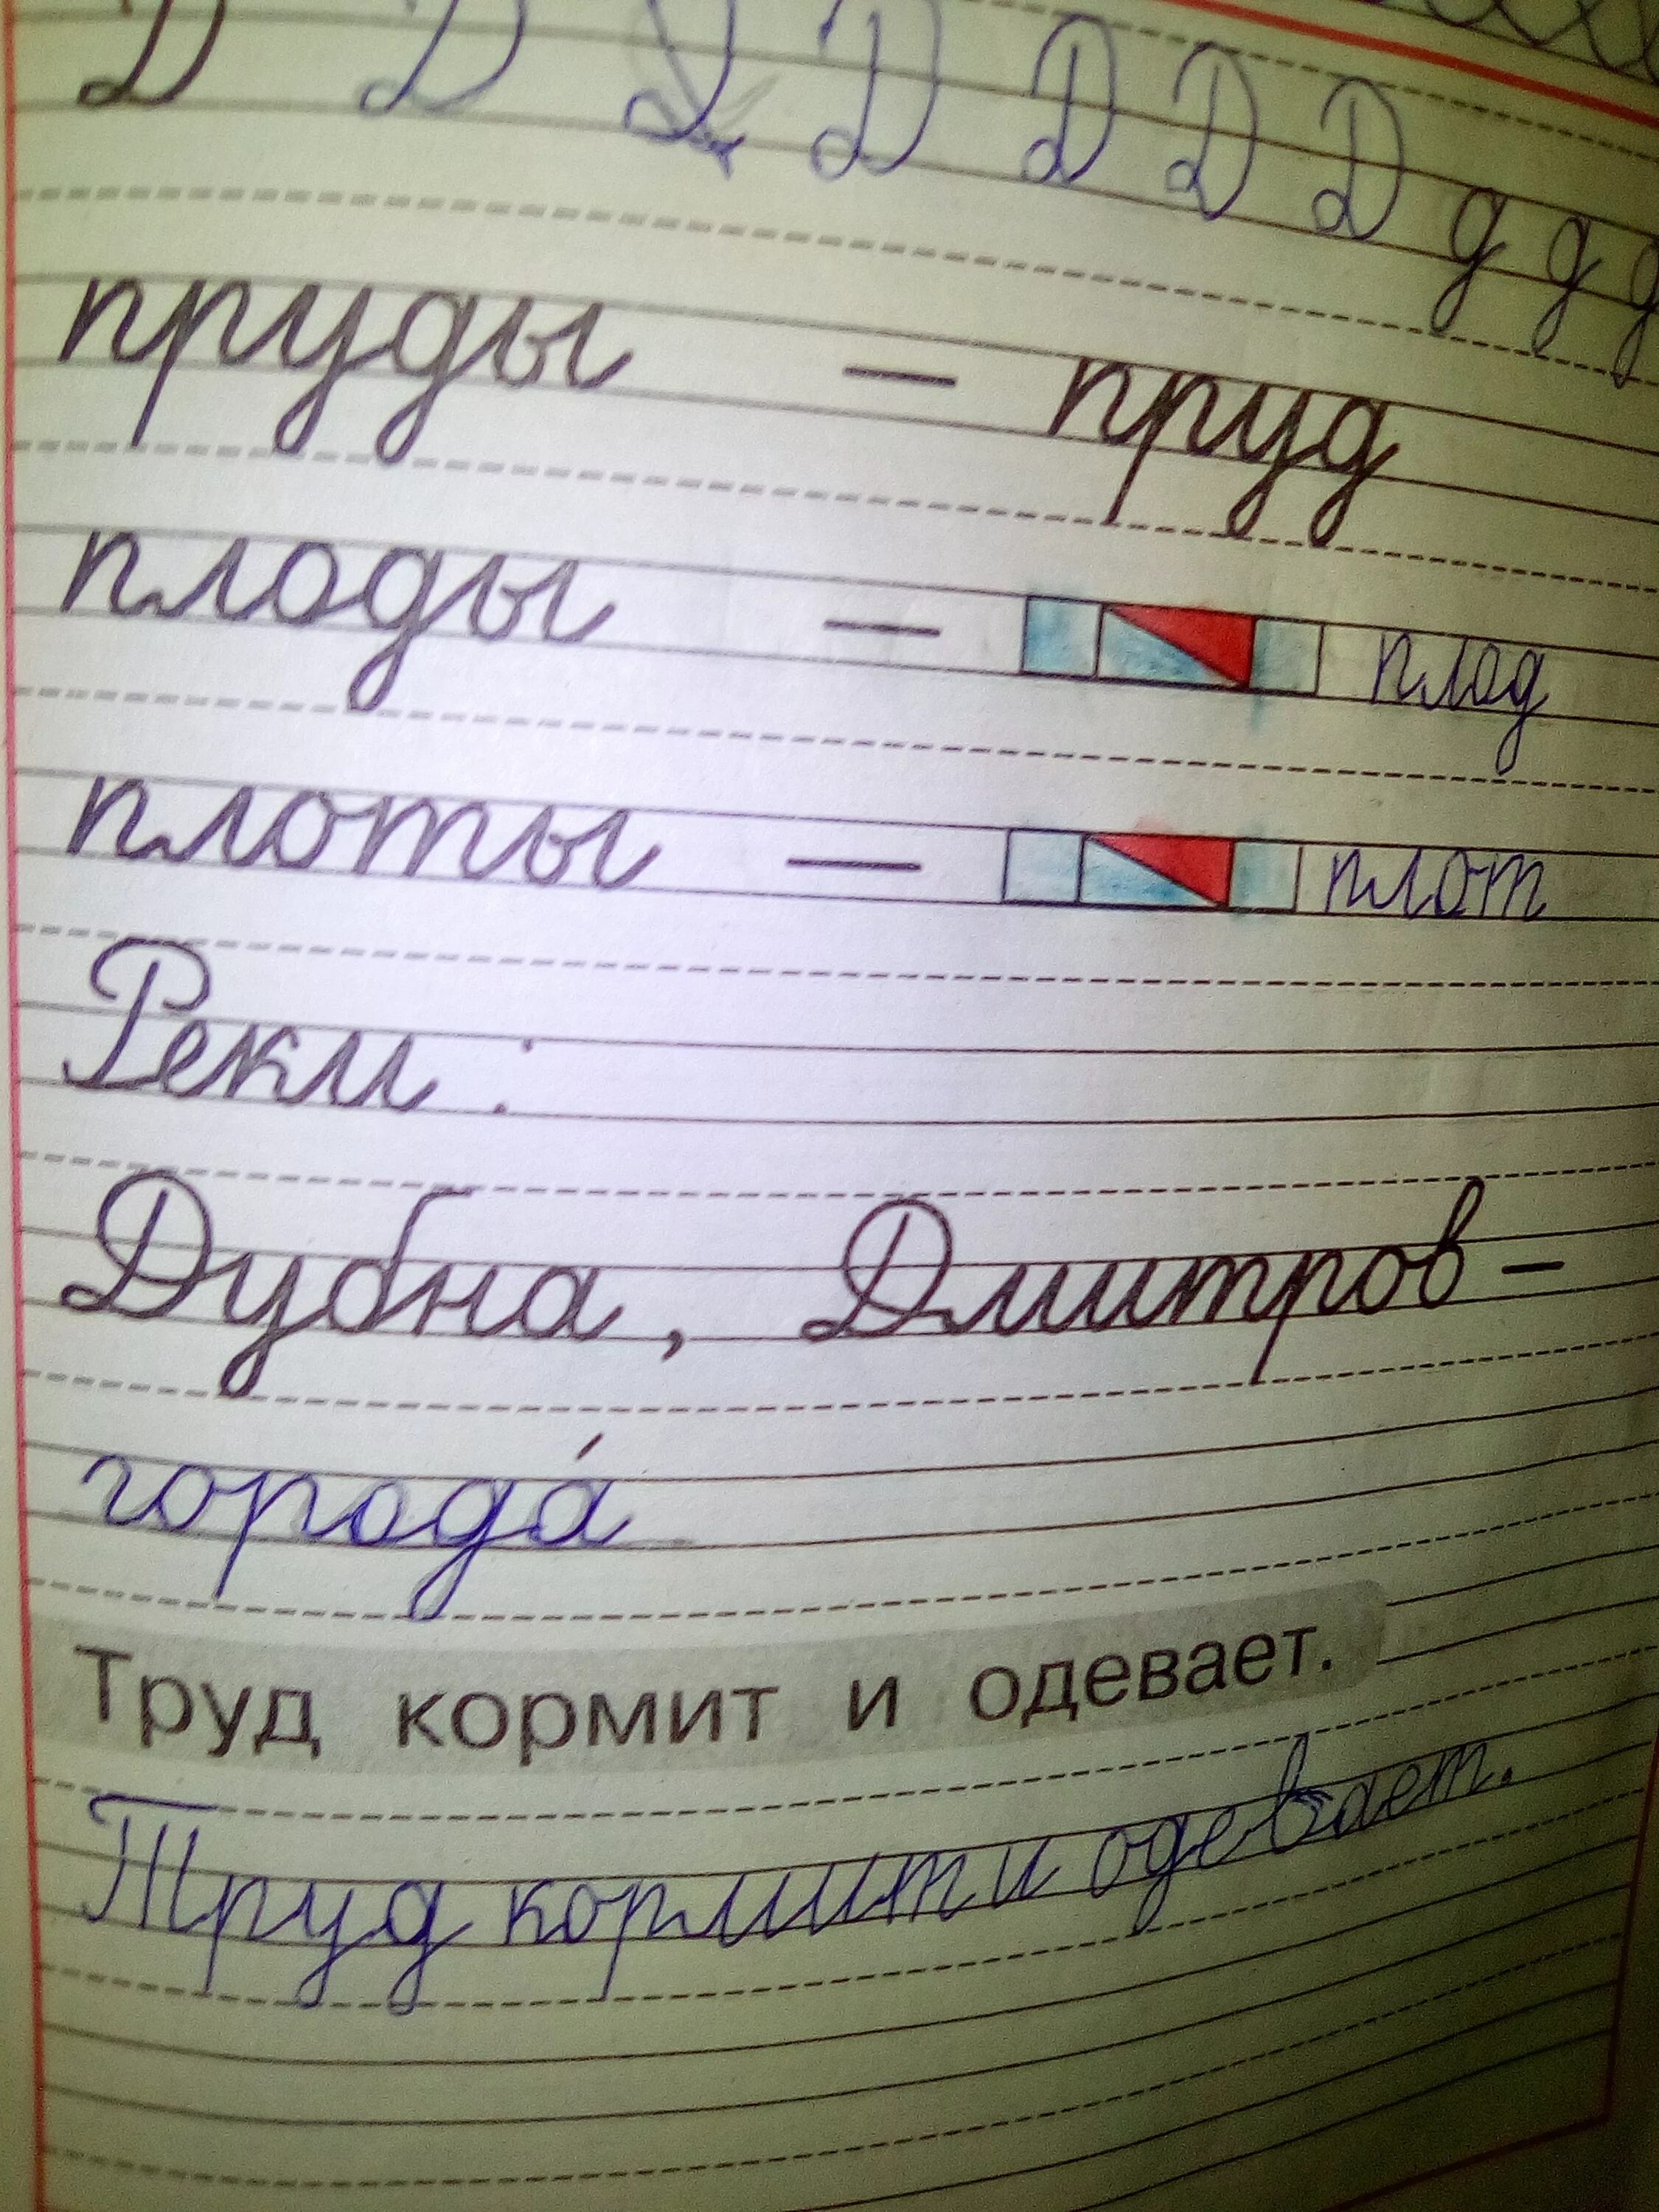 Д Д Д Д Д Д Д д д д
пруды — пруд
плоды — плод
плоты — плот
Реки :
Дубна, Дмитров –
города́
Труд кормит и одевает.
Труд кормит и одевает.